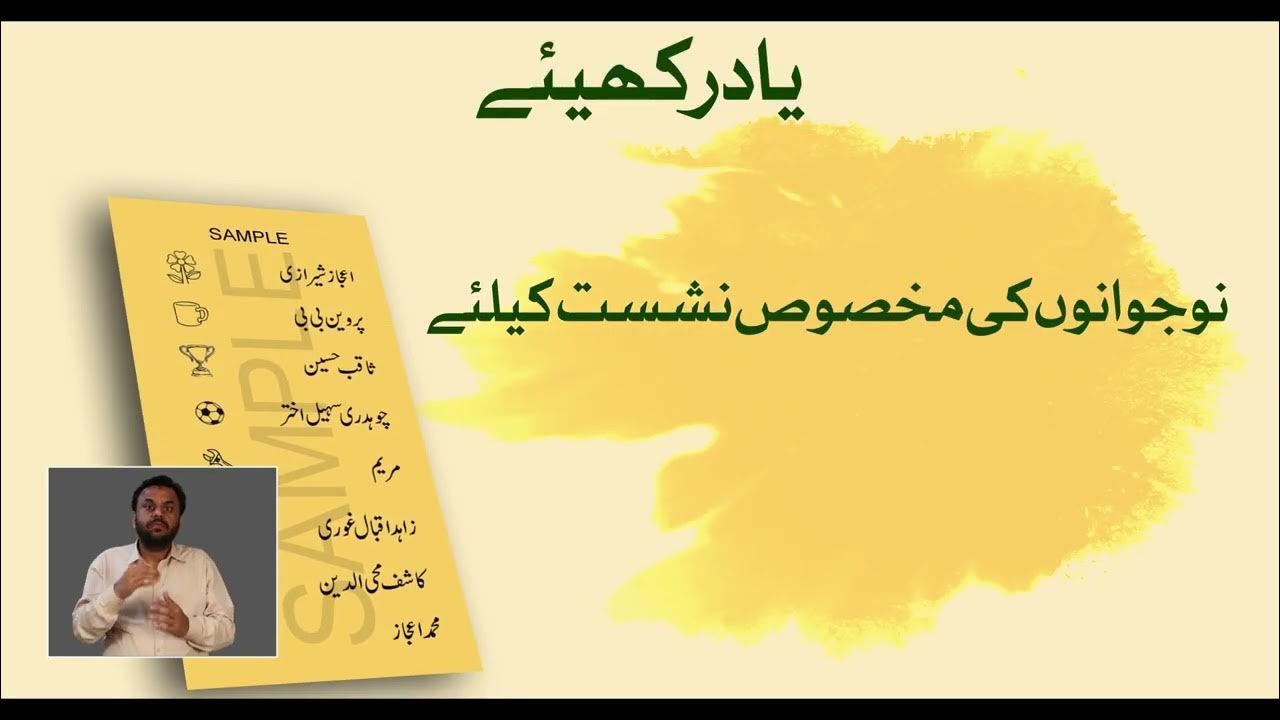 یادرکھیئے
نوجوانوں کی مخصوص نشست کیلئے
SAMPLE
SAMPLE
اعجاز شیرازی
پروین بی بی
ثاقب حسین
چوہدری سہیل اختر
مریم
زاہد اقبال غوری
کاشف محی الدین
محمد اعجاز